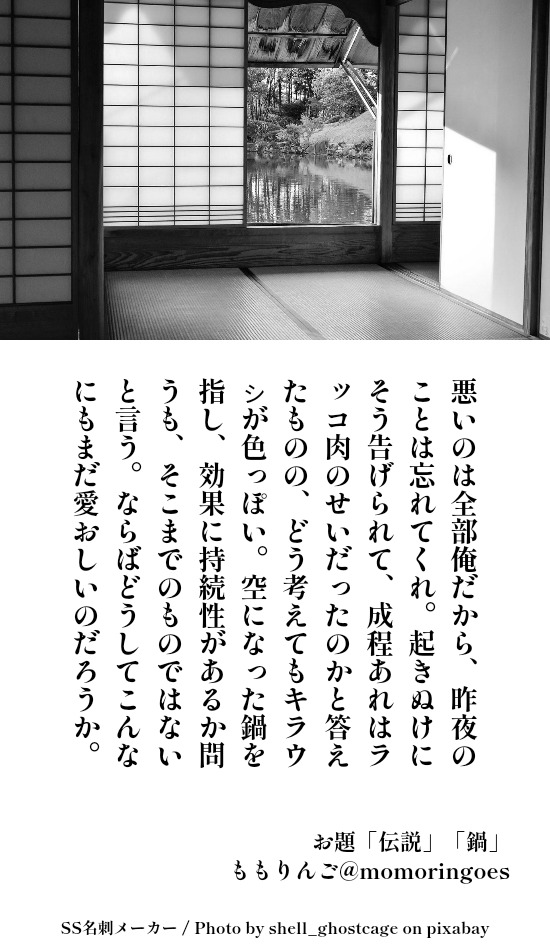 悪いのは全部俺だから、昨夜の
ことは忘れてくれ。起きぬけに
そう告げられて、成程あれはラ
ッコ肉のせいだったのかと答え
たものの、どう考えてもキラウ
シが色っぽい。空になった鍋を
指し、効果に持続性があるか問
うも、そこまでのものではない
と言う。ならばどうしてこんな
にもまだ愛おしいのだろうか。
お題「伝説」「鍋」
ももりんご@momoringoes
SS名刺メーカー / Photo by shell_ghostcage on pixabay